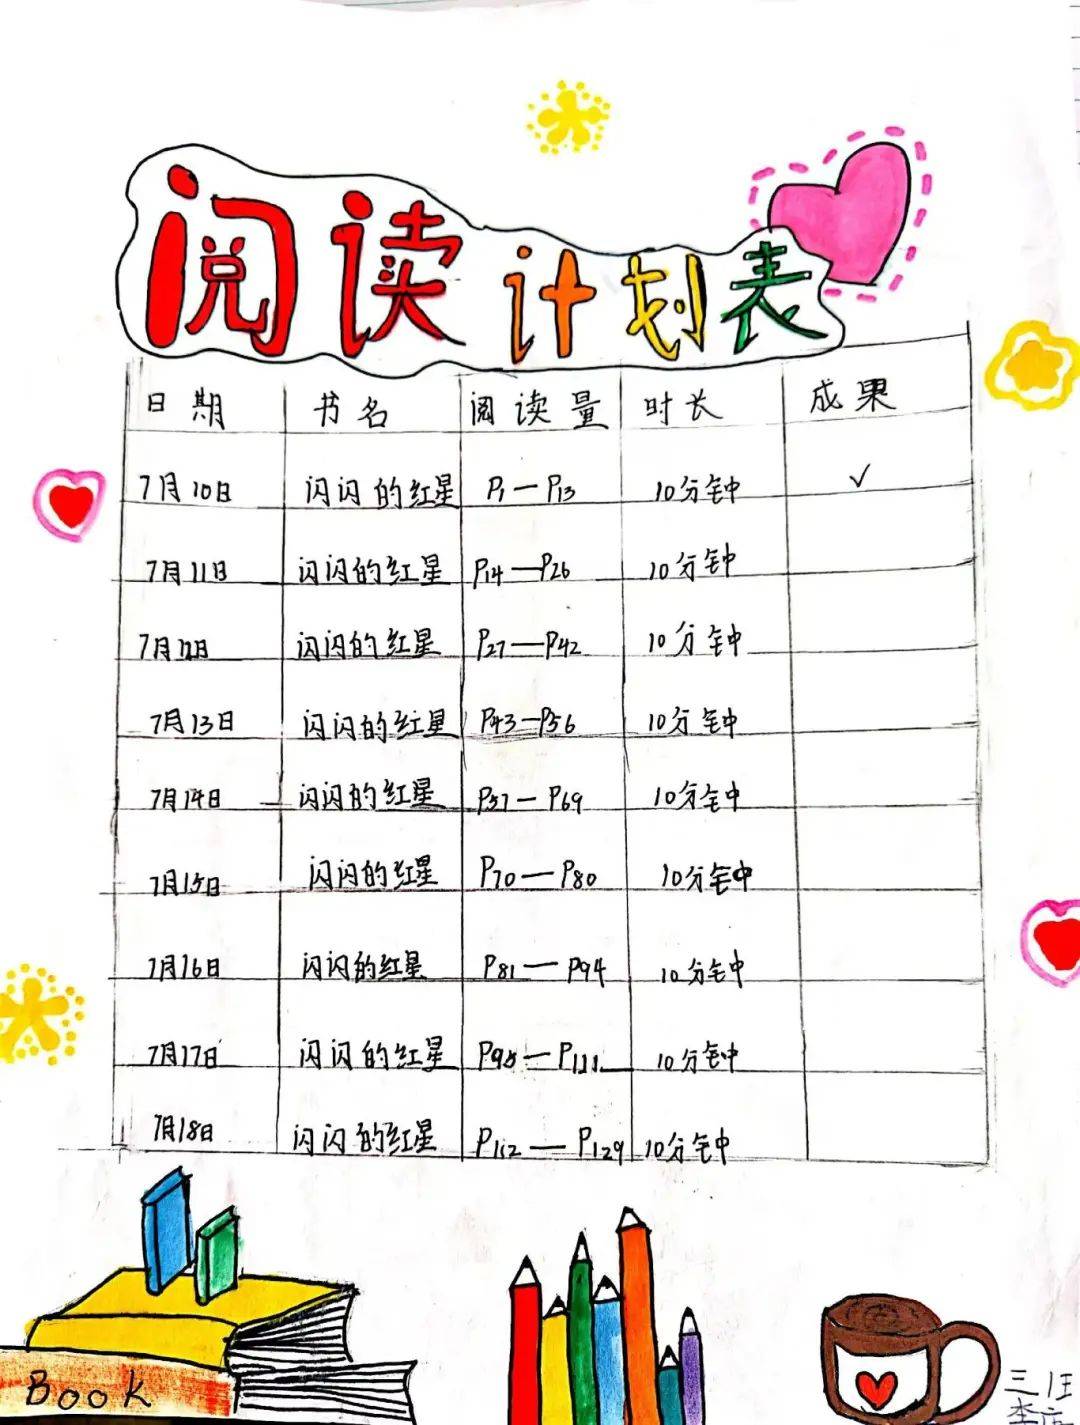 阅读计划表
日期 书名 阅读量 时长 成果
7月10日 闪闪的红星 P1—P13 10分钟 ✓
7月11日 闪闪的红星 P14—P26 10分钟
7月12日 闪闪的红星 P27—P42 10分钟
7月13日 闪闪的红星 P43—P56 10分钟
7月14日 闪闪的红星 P57—P69 10分钟
7月15日 闪闪的红星 P70—P80 10分钟
7月16日 闪闪的红星 P81—P94 10分钟
7月17日 闪闪的红星 P95—P111 10分钟
7月18日 闪闪的红星 P112—P129 10分钟
Book
三
李